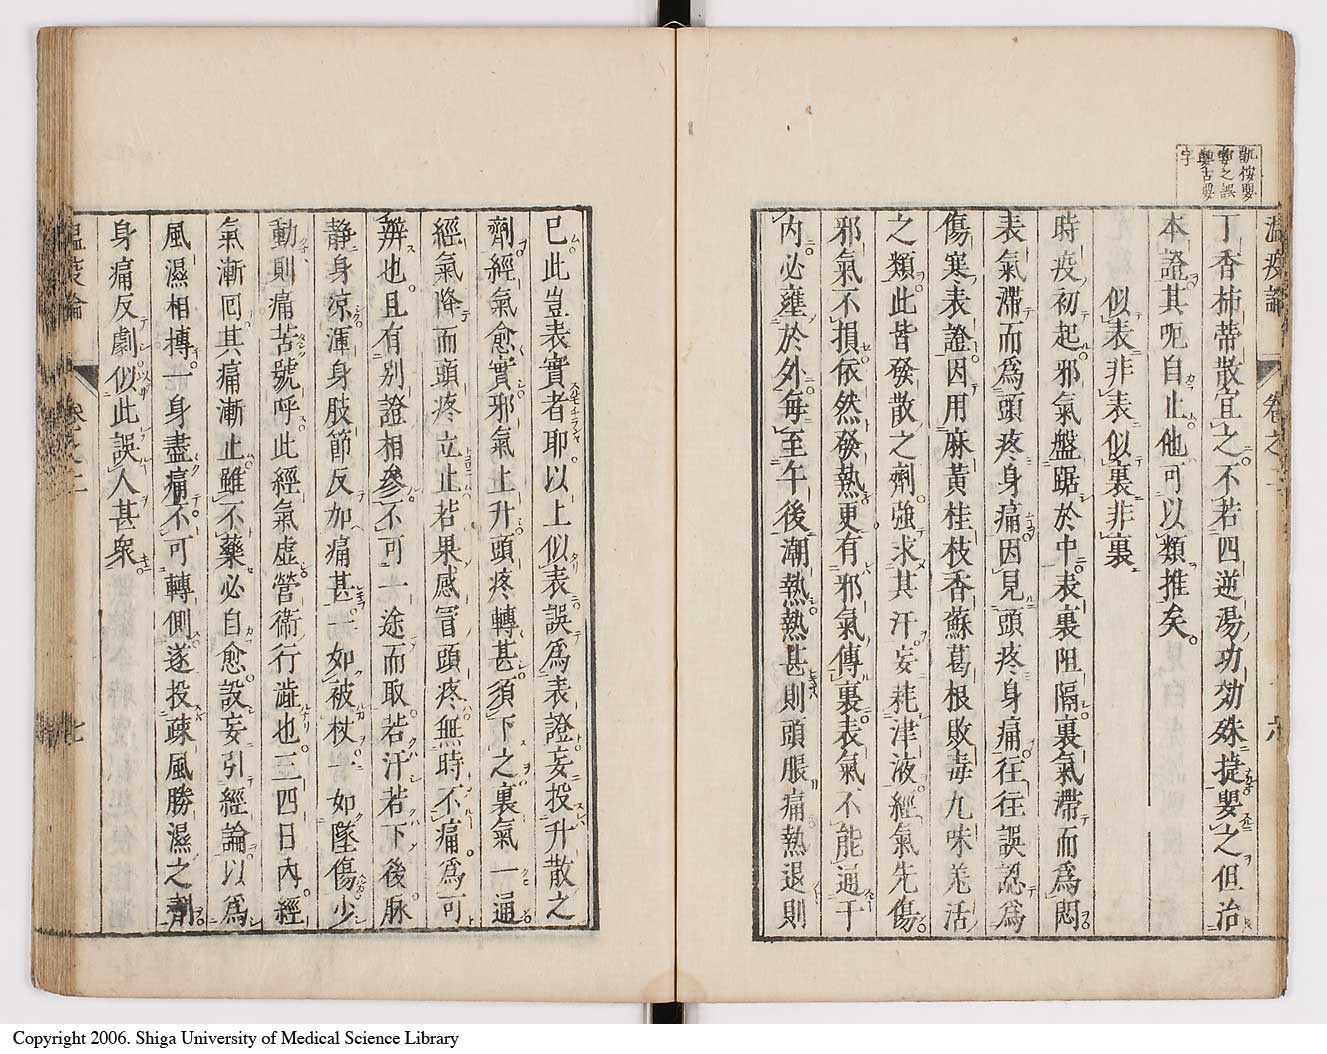 凱按嬰
要之誤
𡢃古要
字
温疫論
卷之二
六
丁香柿蒂散宜之不若四逆湯功効殊捷嬰之但治
本證其呃自止他可以類推矣
似表非表似裏非裏
時疫初起邪氣盤踞於中表裏阻隔裏氣滯而爲悶
表氣滯而爲頭疼身痛因見頭疼身痛往往誤認爲
傷寒表證因用麻黃桂枝香蘇葛根敗毒九味羌活
之類此皆發散之劑強求其汗妄耗津液經氣先傷
邪氣不損依然發熱更有邪氣傳裏表氣不能通于
内必壅於外每至午後潮熱熱甚則頭脹痛熱退則
已此豈表實者耶以上似表誤爲表證妄投升散之
劑經氣愈實邪氣上升頭疼轉甚須下之裏氣一通
經氣降而頭疼立止若果感冒頭疼無時不痛爲可
辨也且有别證相參不可一途而取若汗若下後脉
静身凉渾身肢節反加痛甚一如被杖一如墜傷少
動則痛苦號呼此經氣虚營衛行澁也三四日內經
氣漸囘其痛漸止雖不藥必自愈設妄引經論以爲
風濕相搏一身盡痛不可轉側遂投疎風勝濕之劑
身痛反劇似此誤人甚衆
温疫論
卷之二
七
Copyright 2006. Shiga University of Medical Science Library